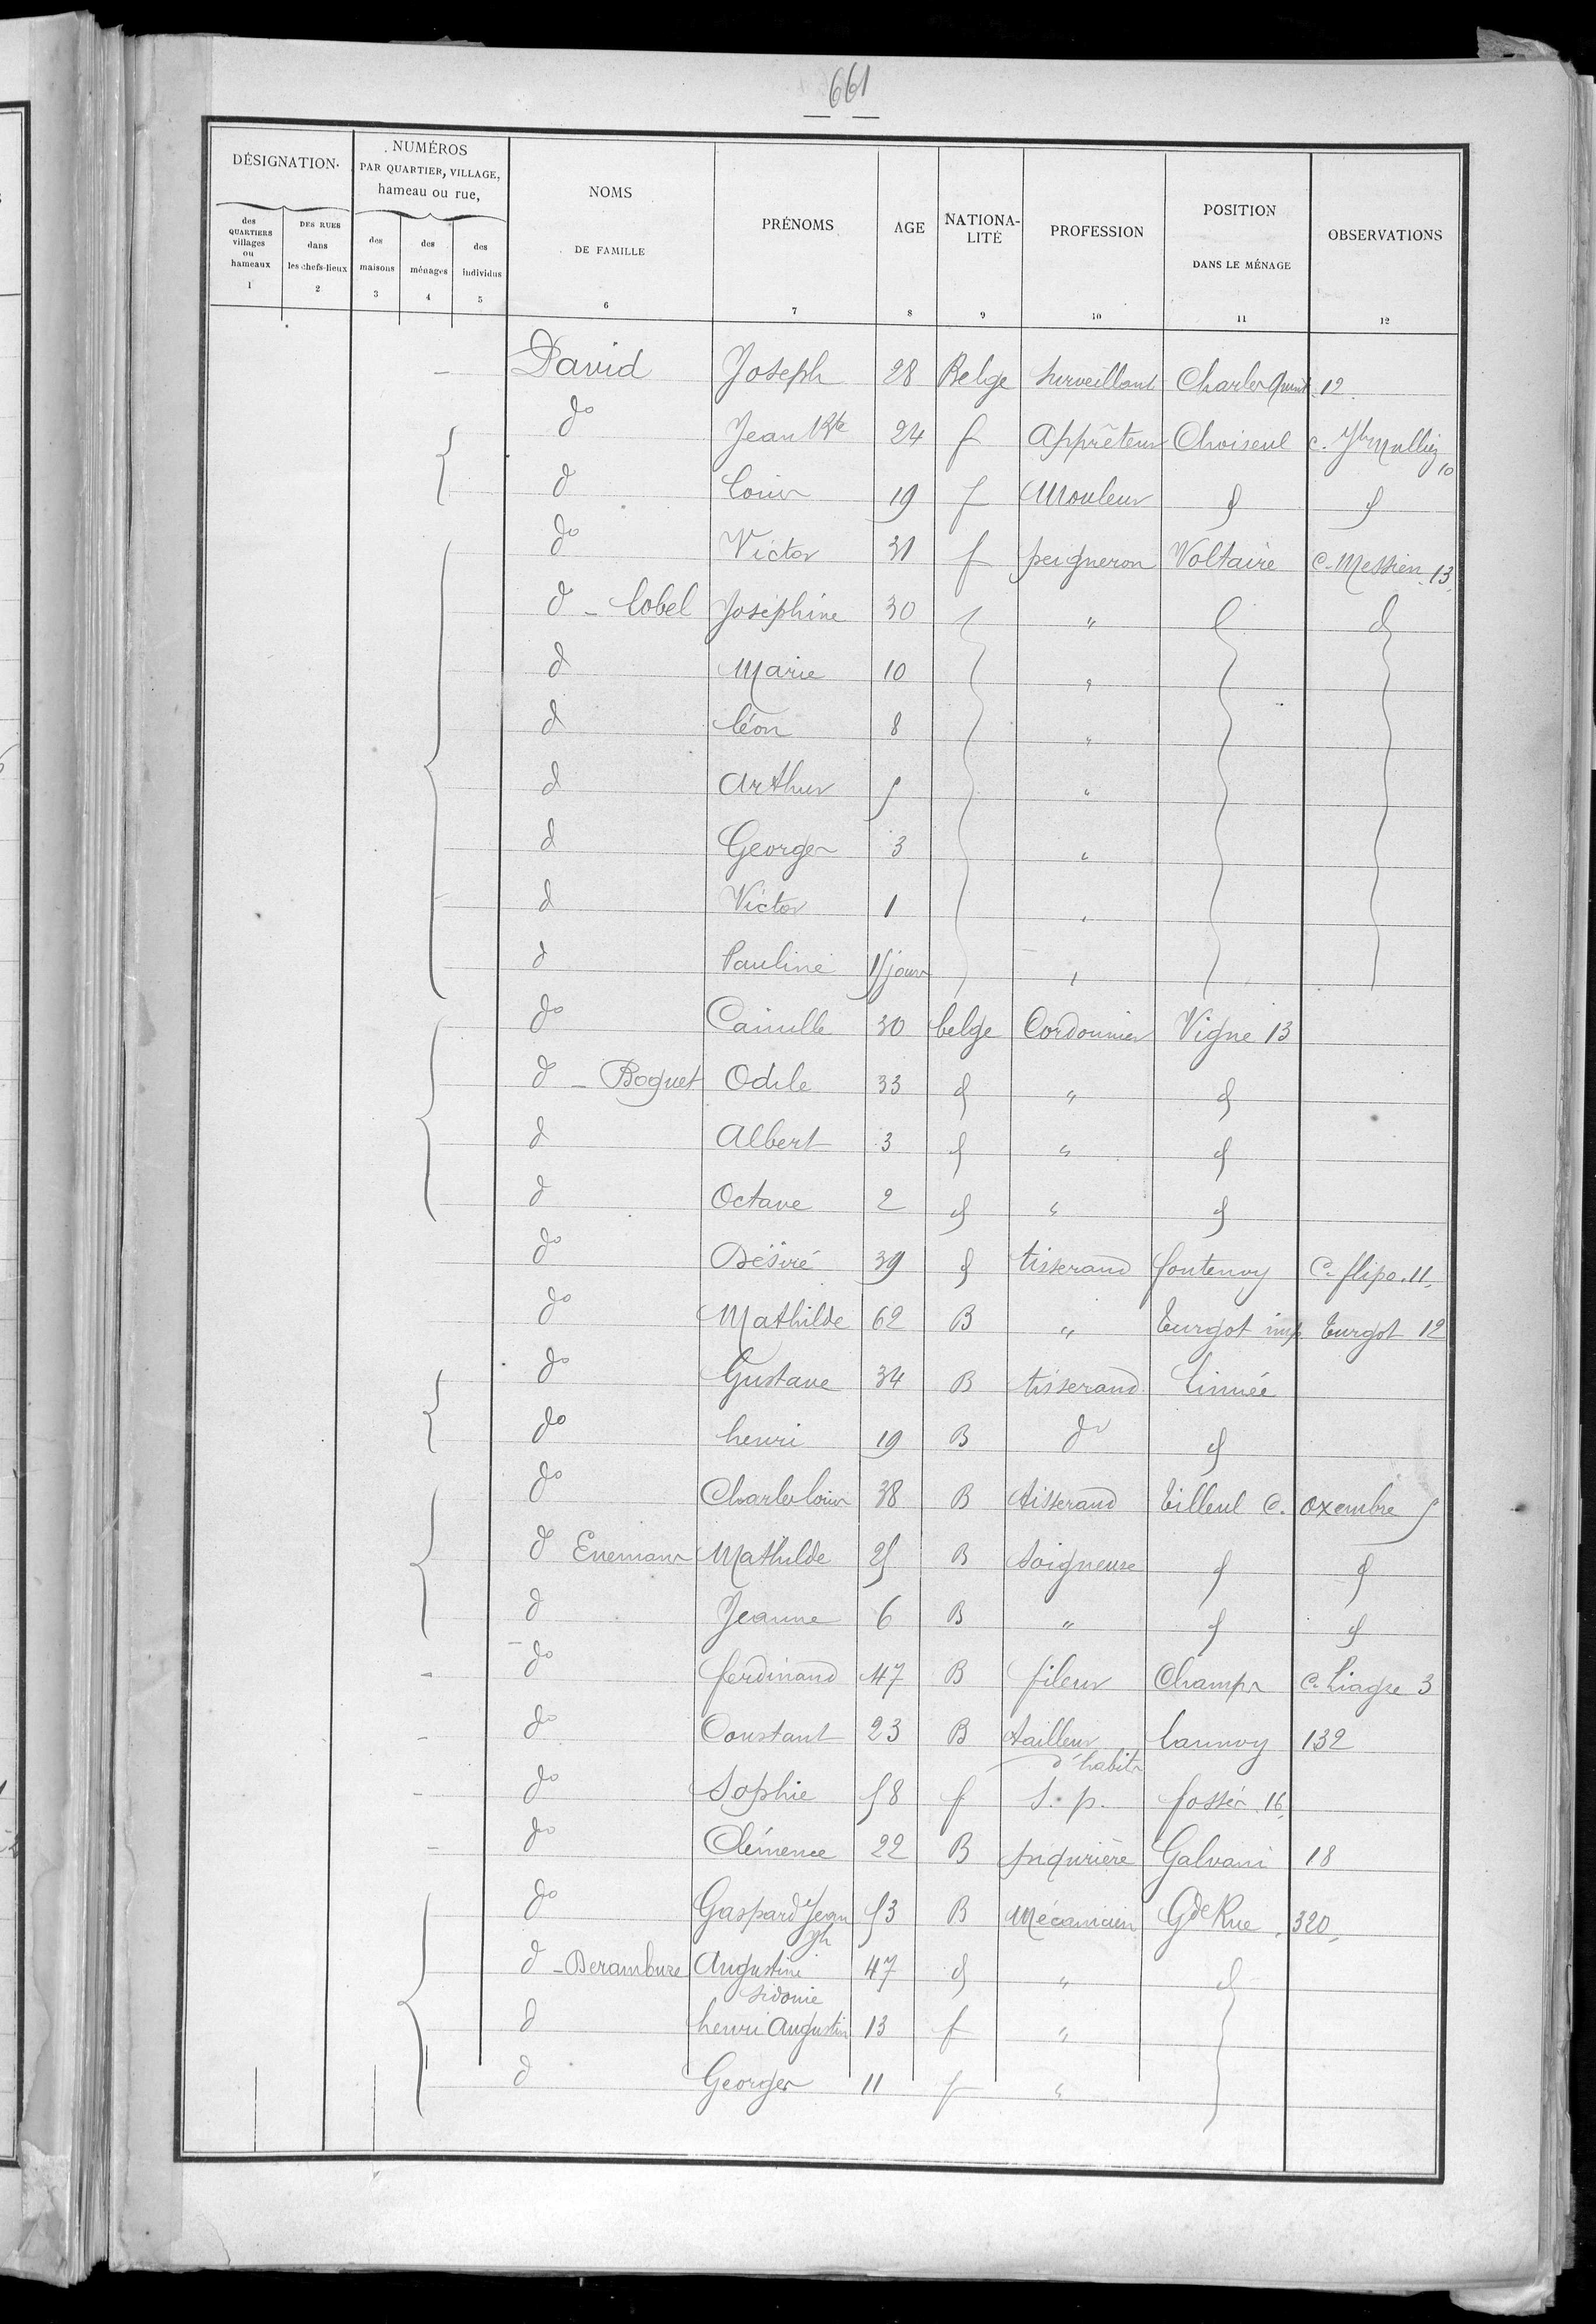 661
DÉSIGNATION
NUMÉROS PAR QUARTIER, VILLAGE, hameau ou rue,
NOMS DE FAMILLE
PRÉNOMS
AGE
NATIONALITÉ
PROFESSION
POSITION DANS LE MÉNAGE
OBSERVATIONS
des QUARTIERS villages ou hameaux
DES RUES dans les chefs-lieux
des maisons
des ménages
des individus
1 2 3 4 5 6 7 8 9 10 11 12
David Joseph 28 Belge Surveillant Charles Quint 12
do Jean Bte 24 f Apprêteur Choiseul c. Yh Mulliez 10
d Louis 19 f Mouleur d d
do Victor 31 f peigneron Voltaire C. Messien 13
d - Lobel Joséphine 30 "
d Marie 10 "
d Léon 8 "
d Arthur 5 "
d Georges 3 "
d Victor 1 "
d Pauline 15 jours "
do Camille 30 belge Cordonnier Vigne 13
d - Boquet Odile 33 d " d
d Albert 3 d " d
d Octave 2 d " d
do Désiré 39 d tisserand fontenoy C. flipo 11
do Mathilde 62 B " Turgot imp. Turgot 12
do Gustave 34 B tisserand Linnée
do henri 19 B do d
do Charles Louis 38 B tisserand Tilleul C. oxembre 5
d Enemans Mathilde 25 B Soigneuse d d
d Jeanne 6 B " d d
do ferdinand 47 B fileur Champs C. Liagre 3
do Constant 23 B tailleur d'habits Lannoy 132
do Sophie 58 f s. p. fossés 16
do Clémence 22 B piqurière Galvani 18
do Gaspard Jean Yh 53 B Mécanicien Gde Rue 320
d - Derambure Augustine Sidonie 47 d " d
d henri Augustin 13 f "
d Georges 11 f "